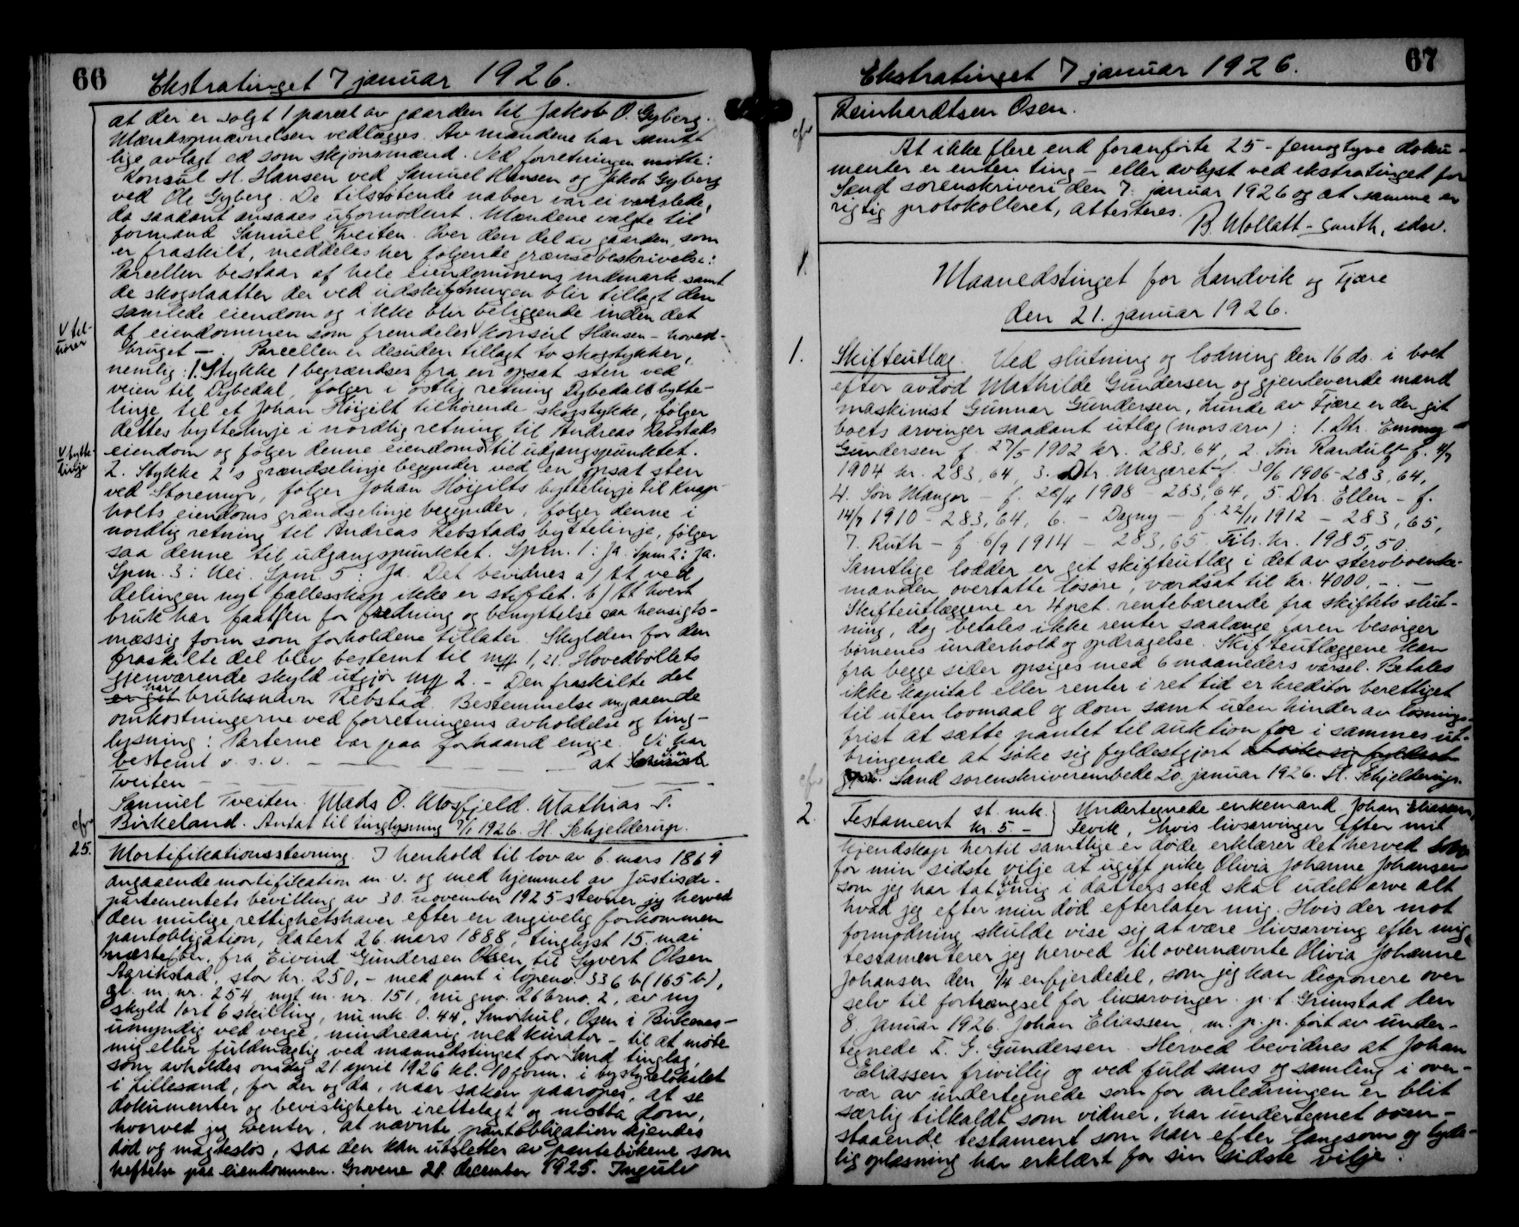 66
Ekstratinget 7 januar 1926.
at der er solgt 1 parcel av gaarden til Jakob O. Gyberg.
Mændsopnævnelsen vedlægges. Av mændene har samt-
lige avlagt ed som skjønsmænd. Ved forretningen møtte:
Konsul H. Hansen ved Samuel Hansen og Jakob Gyberg
ved Ole Gyberg. De tilstøtende naboer var ei varslede,
da saadant ansaaes ufornødent. Mændene valgte til
formand Samuel Tveiten. Over den del av gaarden, som
er fraskilt, meddeles her følgende grænsebeskrivelse:
Parcellen bestaar af hele eiendommens indmark samt
de skogslaatter der ved utskiftningen blir tillagt den
samlede eiendom og ikke blir beliggende inden det
af eiendommen som fremdeles V konsul Hansen - hoved-
V til-
hører
bruget -. Parcellen er desuden tillagt to skogstykker,
nemlig: 1. Stykke 1 begrændses fra en opsat sten ved
veien til Dybedal, følger i østlig retning Dybedals bytte-
linje til et Johan Høigilt tilhørende skogstykke, følger
dettes byttelinje i nordlig retning til Andreas Rebstads
eiendom og følger denne eiendoms V til utgangspunktet.
V bytte-
linje
2. Stykke 2's grændselinje begynder ved en opsat sten
ved Storemyr, følger Johan Høigilts byttelinje til Knap-
holts eiendoms grændselinje begynder, følger denne i
nordlig retning til Andreas Rebstads byttelinje, følger
saa denne til utgangspunktet. Spm. 1: Ja. Spm 2: Ja.
Spm. 3: Nei. Spm. 5: Ja. Det bevidnes a) At ved
delingen nyt fællesskap ikke er stiftet. b) At hvert
bruk har faat en for fredning og benyttelse saa hensigts-
mæssig form som forholdene tillater. Skylden for den
fraskilte del blev bestemt til mk 1,21. Hovedbøllets
gjenværende skyld utgjør mk 2.- Den fraskilte del
er git har bruksnavn Rebstad. Bestemmelse angaaende
omkostningerne ved forretningens avholdelse og ting-
lysning: Parterne var paa forhaand enige. Vi har
bestemt o.s.v. at
Tveiten
Samuel Tveiten. Mads O. Mosfjeld. Mathias T.
Birkeland. Antat til tinglysning 7/1 1926. H. Schjelderup.
cfr
25.
Mortifikationsstevning. I henhold til lov av 6. mars 1869
angaaende mortifikation m. v. og med hjemmel av Justisde-
partementets bevilling av 30. november 1925 stevner jeg herved
den mulige rettighetshaver efter en angivelig forkommen
pantobligation, datert 26. mars 1888, tinglyst 15. mai
næstefter, fra Eivind Gundersen Osen til Syvert Olsen
Agrikstad, stor kr. 250,- med pant i løpenr. 336 b (165 b),
gl. m. nr. 254, nyt m. nr. 151, nu gno. 26 brno. 2, av ny
skyld 1 ort 6 skilling, nu mk 0.44, Smorhul, Osen i Birkenes -
umyndig ved verge, mindreaarig med kurator - til at møte
mig eller fuldmægtig ved maanedstinget for Sand tinglag,
som avholdes onsdag 21 april 1926 kl. 10 form. i bystyrelokalet
i Lillesand, for der og da, naar saken paaropes, at se
dokumenter og bevisligheter irettelagt og motta dom,
hvorved jeg venter, at nævnte pantobligation kjendes
død og magtesløs, saa den kan utslettes av pantebøkene som
heftelse paa eiendommen. Grovene 21. december 1925. Ingulv
67
Ekstratinget 7 januar 1926.
Reinhardtsen Osen.
cfr
At ikke flere end foranførte 25 - femogtyve doku-
menter er enten ting - eller avlyst ved ekstratinget for
Sand sorenskriveri den 7. januar 1926 og at samme er
rigtig protokolleret, attesteres.
B. Mollatt-Santh, edsv.
Maanedstinget for Landvik og Fjære
den 21. januar 1926.
1.
Skifteutlæg. Ved slutning og lodning den 16 ds. i boet
efter avdød Mathilde Gundersen og gjenlevende mand
maskinist Gunnar Gundersen, Lunde av Fjære er der git
boets arvinger saadant utlæg (morsarv): 1. Dtr. Emmy
Gundersen f. 27/5 1902 kr. 283,64, 2. Søn Randulf f. 4/7
1904 kr. 283,64, 3. Dtr. Margaret f. 30/6 1906 - 283,64,
4. Søn Mangor - f. 28/4 1908 - 283,64, 5. Dtr. Ellen - f.
14/7 1910 - 283,64, 6. - Dagny - f. 22/11 1912 - 283,65,
7. Ruth - f 6/9 1914 - 283,65. Tils. kr. 1985,50
Samtlige lodder er git skifteutlæg i det av sterboenke-
manden overtatte løsøre, værdsat til kr. 4000.-.-
Skifteutlæggene er 4 pct. rentebærende fra skiftets slut-
ning, dog betales ikke renter saalænge faren besørger
børnenes underhold og opdragelse. Skifteutlæggene kan
fra begge sider opsiges med 6 maaneders varsel. Betales
ikke kapital eller renter i ret tid er kreditor berettiget
til uten lovmaal og dom samt uten hinder av løsnings-
frist at sætte pantet til auktion for i sammes ut-
bringende at søke sig fyldestgjort at søke sig fyldest-
gjort. Sand sorenskriverembede 20. januar 1926. H. Schjelderup.
cfr
2.
Testament st. mk. kr. 5 - Undertegnede enkemand Johan Eliassen,
Levik, hvis livsarvinger efter mit
kjendskap hertil samtlige er døde erklærer det herved
for min sidste vilje at ugift pike Olivia Johanne Johansen
som jeg har tat til mig i datters sted skal udelt arve alt
hvad jeg efter min død efterlater mig. Hvis der mot
formodning skulde vise sig at være livsarving efter mig
testamenterer jeg herved til ovennævnte Olivia Johanne
Johansen den 1/4 enfjerdedel, som jeg kan disponere over
selv til fortrængsel for livsarvinger. p.t. Grimstad den
8. Januar 1926. Johan Eliassen, m.p.p. ført av under-
tegnede T. G. Gundersen. Herved bevidnes at Johan
Eliassen frivillig og ved fuld sans og samling i over-
vær av undertegnede som for anledningen er blit
særlig tilkaldt som vidner, har undertegnet oven-
staaende testament som han efter langsom og tyde-
lig oplæsning har erklært for sin sidste vilje.